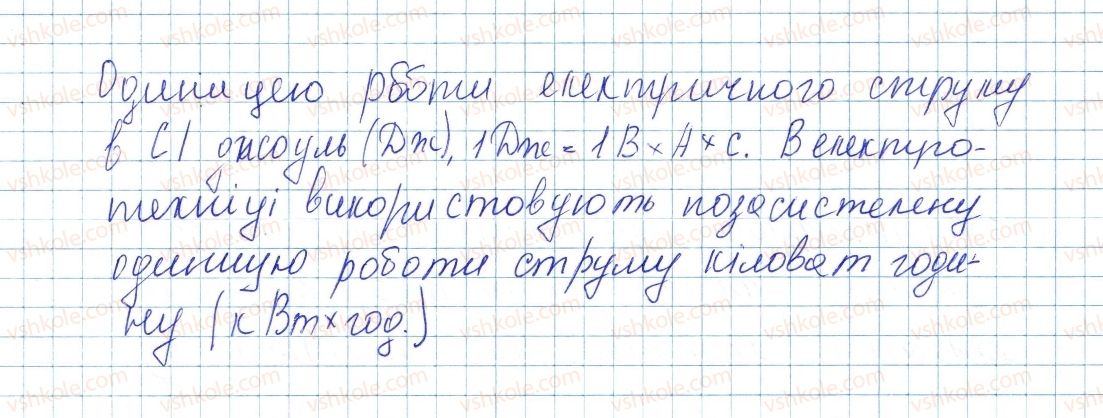 Одиницею рботи електричного струму
в СІ джоуль (Дж), 1Дж = 1В × А × с. В електро-
техніці використовують позасистемну
одиницю роботи струму кіловат годи-
ну (кВт × год.)
vshkole.com